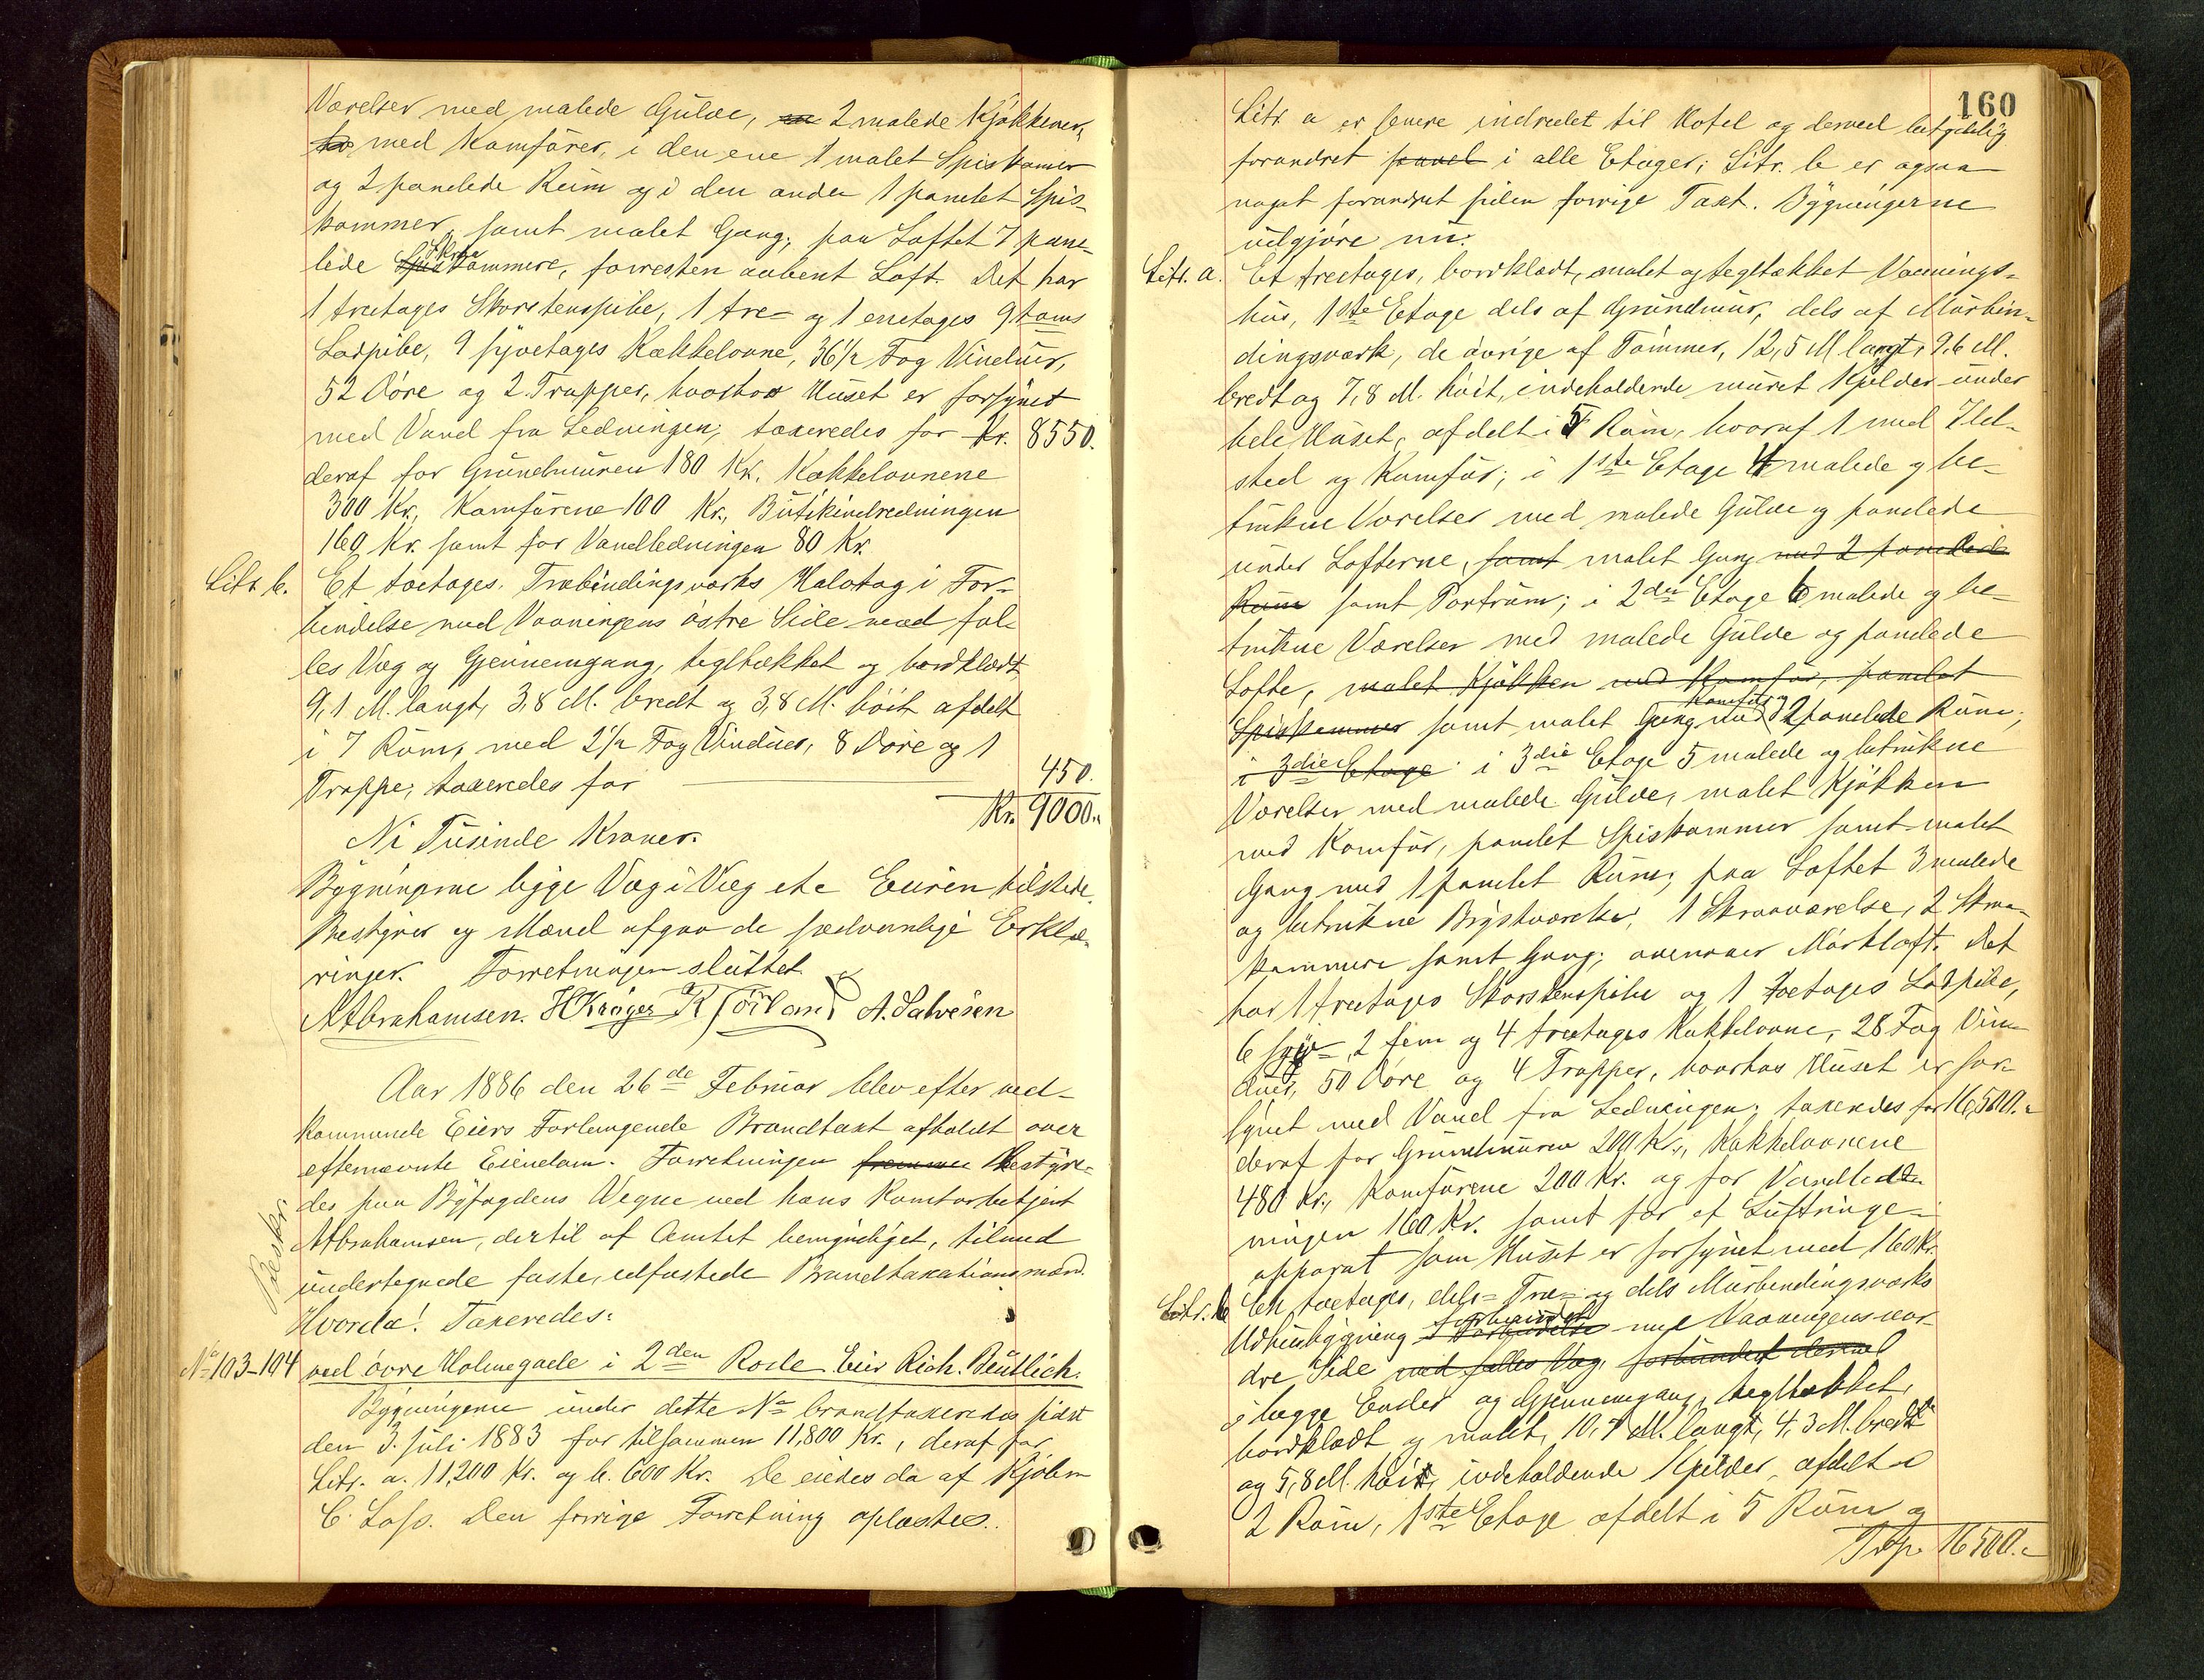 Værelser med malede Gulve, 2 malede Kjøkkener,
med Komfurer, i den ene 1 malet Spiskamer
og 2 panelede Rum og i den anden 1 panelet Spis-
kammer, samt malet Gang; paa Loftet 7 pane-
lede Skraakammere, forresten aabent Loft. Det har
1 treetages Skorstenspibe, 1 tre- og 1 enetages 9 toms
Lodpibe, 9 syvetages Kakkelovne, 36 1/2 Fag Vinduer,
52 Døre og 2 Trapper, hvorhos Huset er forsynet
med Vand fra Ledningen; taxeredes for Kr. 8550.
deraf for Grundmuren 180 Kr. Kakkelovnene
300 Kr., Komfurene 100 Kr., Butikindredningen
160 Kr. samt for Vandledningen 80 Kr.
Litr. b. Et toetages, Træbindingsværks Halvtag i For-
bindelse med Vaaningens østre Side med fæl-
les Væg og Gjennemgang, tegltækket og bordklædt
9,1 M. langt, 3,8 M. bredt og 3,8 M. høit afdelt
i 7 Rum, med 2 1/2 Fag Vinduer, 8 Døre og 1
Trappe; taxeredes for 450.
Kr. 9000.
Ni Tusinde Kroner.
Bygningerne ligge Væg i Væg etc Eieren tilstede.
Bestyrer og Mænd afgav de sædvanlige Erklæ-
ringer. Forretningen sluttet
A Abrahamsen. H Krøger K Tørland A. Salvesen
Aar 1886 den 26de Februar blev efter ved-
kommende Eiers Forlangende Brandtaxt afholdt over
efternævnte Eiendom. Forretningen bestyre-
des paa Byfogdens Vegne ved hans Kontorbetjent
Abrahamsen, dertil af Amtet bemyndiget, tilmed
undertegnede faste, edfæstede Brandtaxationsmænd.
Beskr.
Hvorda! Taxeredes:
No 103-104 ved øvre Holmegade i 2den Rode Eier Rich. Beutlich.
Bygningerne under dette No brandtaxeredes sidst
den 3. Juli 1883 for tilsammen 11,800 Kr., deraf for
Litr. a. 11,200 Kr. og b. 600 Kr. De eiedes da af Kjøbm
C. Lass. Den forrige Forretning oplæstes.
160
Litr a er senere indredet til Hotel og derved betydelig
forandret i alle Etager; Litr. b er ogsaa
noget forandret siden forrige Taxt. Bygningerne
udgjøre nu:
Litr. a. Et treetages, bordklædt, malet og tegltækket Vaanings-
hus, 1ste Etage dels af Grundmur, dels af Murbin-
dingsværk, de øvrige af Tømmer, 12,5 M langt, 9,6 M.
bredt og 7,8 M. høit, indeholdende muret Kjelder under
hele Huset, afdelt i 5 Rum, hvoraf 1 med Ild-
sted og Komfur; i 1ste Etage 4 malede og be-
trukne Værelser med malede Gulve og panelede
under Lofterne, samt malet Gang med 2 panelede
Rum samt Portrum; i 2den Etage 6 malede og be-
trukne Værelser med malede Gulve og panelede
Lofte, malet Kjøkken med Komfur, panelet
Spiskammer samt malet Gang med Komfur og 2 panelede Rum;
i 3die Etage i 3die Etage 5 malede og betrukne
Værelser med malede Gulve, malet Kjøkken
med Komfur, panelet Spiskammer samt malet
Gang med 1 panelet Rum; paa Loftet 3 malede
og betrukne Brystværelser, 1 Skraaværelse, 2 Skraa-
kammere samt Gang; ovenover Mørkloft. Det
har 1 treetages Skorstenspibe og 1 toetages Lodpibe,
6 syv-, 2 fem og 4 treetages Kakkelovne, 28 Fag Vin-
duer, 50 Døre og 4 Trapper, hvorhos Huset er for-
synet med Vand fra Ledningen; taxeredes for 16,500.
deraf for Grundmuren 200 Kr., Kakkelovnene
480 Kr., Komfurene 200 Kr. og for Vandled-
ningen 160 Kr. samt for et Luftringe-
apparat som Huset er forsynet med 160 Kr.
Litr. b En toetages, dels Træ- og dels Murbindingsværks
Udhusbygning forbundet med Vaaningens nor-
dre Side med fælles Væg, forbundet dermed
i begge Ender og Gjennemgang, tegltækket,
bordklædt og malet, 10,7 M. langt, 4,3 M. bredt
og 5,8 M. høit, indeholdende Kjelder, afdelt i
2 Rum, 1ste Etage afdelt i 5 Rum og
Trsp. 16500.